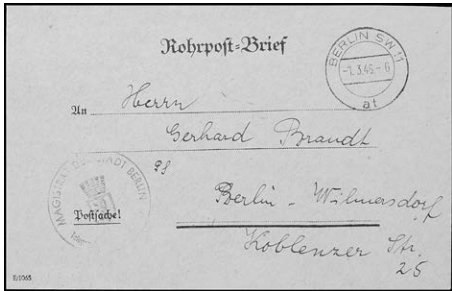 Rohrpost-Brief
BERLIN SW 11
-7.3.46-6
at
An Herrn
Gerhard Brandt
98
MAGISTRAT DER STADT BERLIN
Postsache!
Berlin - Wilmersdorf
Koblenzer Str.
25